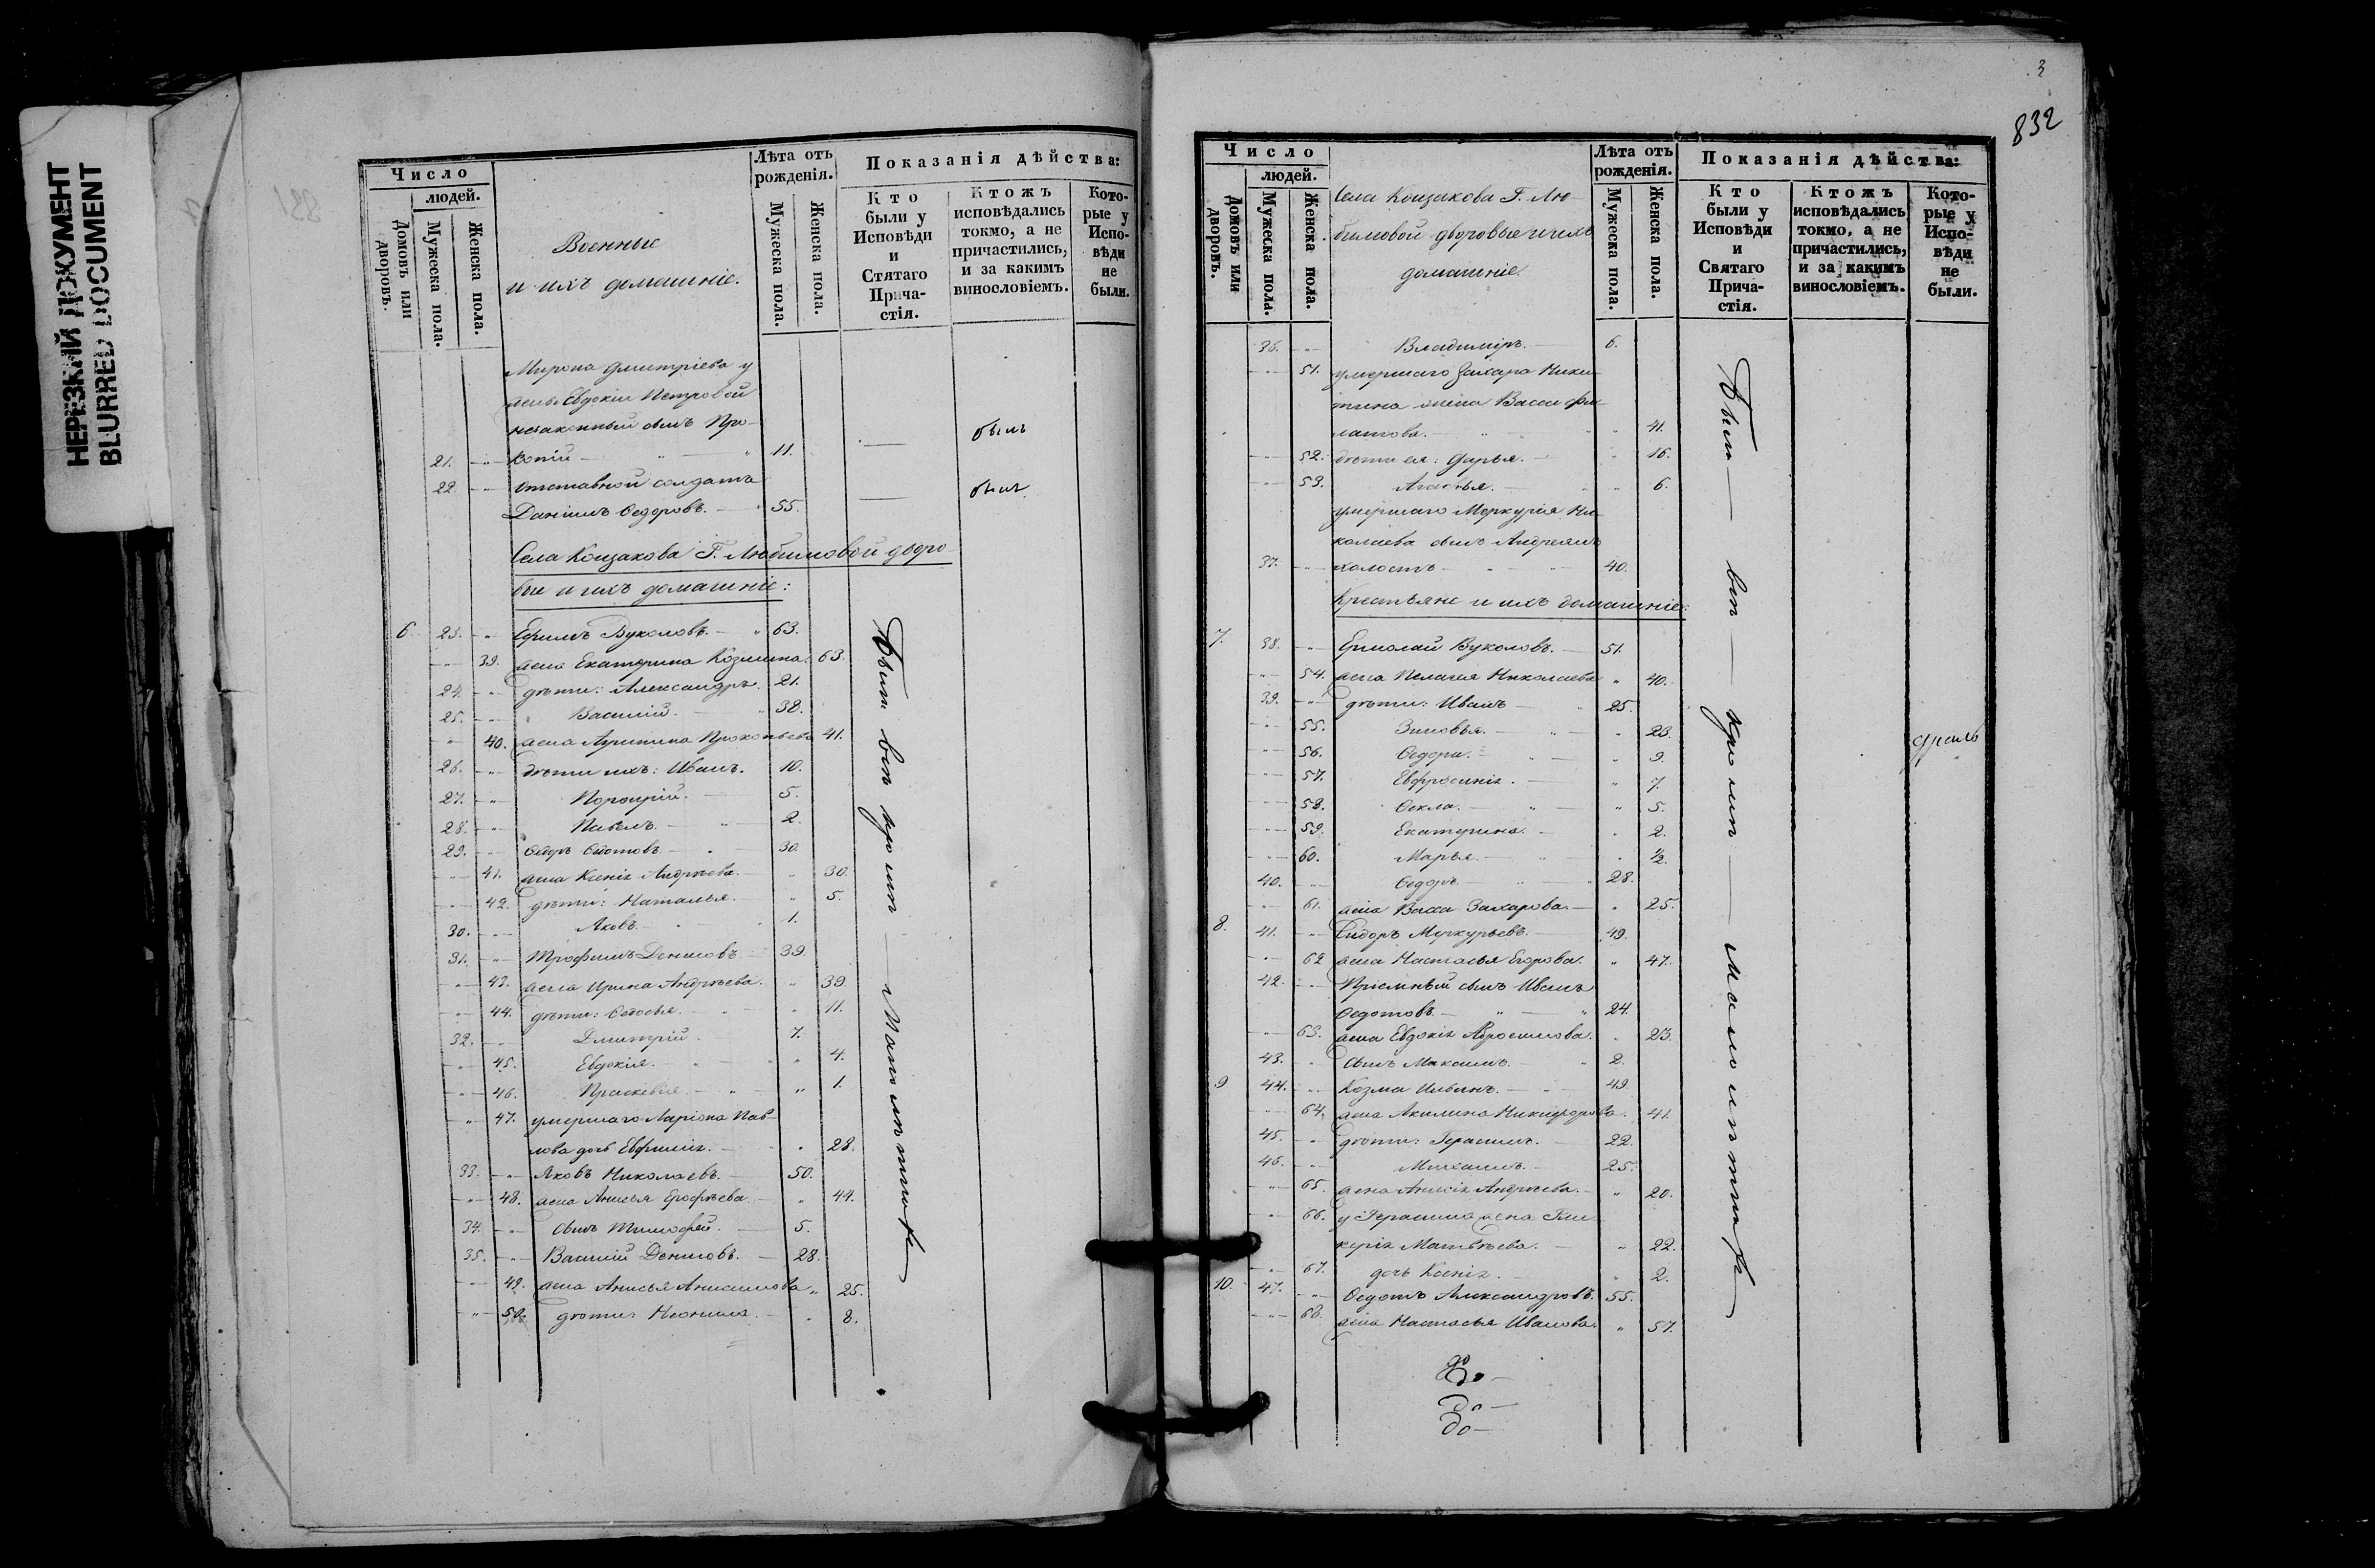 НЕРЕЗКИЙ ДОКУМЕНТ
BLURRED DOCUMENT
Число
людей.
Домовъ или дворовъ.
Мужеска пола.
Женска пола.
Военные
и ихъ домашніе.
Лѣта отъ рожденія.
Мужеска пола.
Женска пола.
Показанія дѣйства:
Кто были у Исповѣди и Стятаго Прича-стія.
Ктожъ исповѣдались токмо, а не причастились, и за какимъ винословіемъ.
Кото-рые у Испо-вѣди не были.
Мирона Дмитріева у
жены Евдокіи Петровой
незаконный сынъ Про-
21. копій 11. былъ
22. отставной солдатъ
Даніилъ Ѳедоровъ. 55. былъ
Села Кощакова Г. Любимовой дворо-
вые и ихъ домашніе:
6. 23. Ефимъ Вуколовъ. 63.
39. жена Екатерина Козмина. 63.
24. дѣти: Александръ. 21.
25. Василій. 38.
40. жена Агрипина Прокопьева 41.
26. дѣти ихъ: Иванъ. 10.
27. Порфирій. 5.
28. Павелъ. 2.
29. Ѳедоръ Ѳедотовъ 30.
41. жена Ксенія Андреева. 30.
42. дѣти: Наталья. 5.
30. Яковъ. 1.
31. Трофимъ Денисовъ. 39.
43. жена Ирина Андреева. 39.
44. дѣти: Ѳедосья. 11.
32. Дмитрій. 7.
45. Евдокія. 4.
46. Праскевья. 1.
47. умершаго Ларіона Пав-
лова дочь Евфимія. 28.
33. Яковъ Николаевъ. 50.
48. жена Анисья Ерофѣева. 44.
34. сынъ Тимофей. 5.
35. Василій Денисовъ. 28.
49. жена Анисья Анисимова 25.
50. дѣти: Неонила. 8.
Были вси кромѣ малолѣтнихъ
3
832
Число
людей.
Домовъ или дворовъ.
Мужеска пола.
Женска пола.
Села Кощакова Г. Лю-
бимовой дворовые и ихъ
домашніе.
Лѣта отъ рожденія.
Мужеска пола.
Женска пола.
Показанія дѣйства:
Кто были у Исповѣди и Святаго Прича-стія.
Ктожъ исповѣдались токмо, а не причастились, и за какимъ винословіемъ.
Кото-рые у Испо-вѣди не были.
36. Владиміръ. 6.
51. умершаго Захара Ники-
тина жена Васса Фи-
латова. 41.
52. дѣти ея: Дарья. 16.
53. Агафья. 6.
умершаго Меркурія Ни-
колаева сынъ Андреянъ
37. холостъ 40.
Крестьяне и ихъ домашніе:
7. 38. Ермолай Вуколовъ. 51.
54. жена Пелагея Николаева 40.
39. дѣти: Иванъ 25.
55. Зиновья. 23.
56. Ѳедора. 9.
57. Евфросинія. 7.
58. Ѳекла. 5.
59. Екатерина. 2.
60. Марья. ½.
40. Ѳедоръ. 28.
61. жена Васса Захарова. 25.
8. 41. Сидоръ Меркурьевъ. 49.
62. жена Настасья Егорова. 47.
42. Пріемный сынъ Иванъ
Ѳедотовъ. 24.
63. жена Евдокія Абросимова. 23.
43. сынъ Максимъ. 2.
9 44. Козма Ильинъ. 49.
64. жена Акилина Никифорова. 41.
45. дѣти: Герасимъ. 22.
46. Михаилъ. 25.
65. жена Анисія Андреева. 20.
66. у Герасима жена Гли-
керія Матвѣева. 22.
67. дочь Ксенія. 2.
10. 47. Ѳедотъ Александровъ. 55.
68. жена Настасья Иванова. 57.
Были вси кромѣ малолѣтнихъ